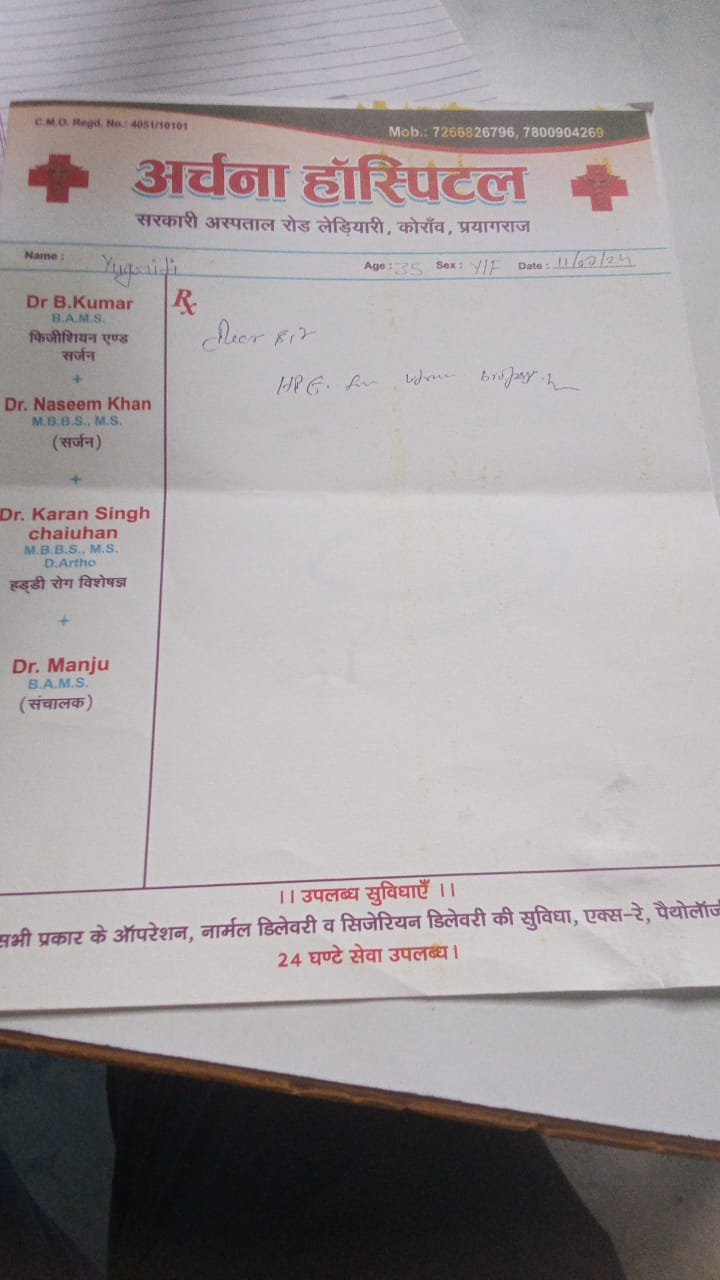 C.M.O. Regd. No.: 4051/10101
Mob.: 7266826796, 7800904269
अर्चना हॉस्पिटल
सरकारी अस्पताल रोड लेड़ियारी, कोराँव, प्रयागराज
Name :
Age : 35 Sex : Y/F Date :
Rx
Dr B.Kumar
B.A.M.S.
फिजीशियन एण्ड
सर्जन
Dr. Naseem Khan
M.B.B.S., M.S.
(सर्जन)
Dr. Karan Singh
chaiuhan
M.B.B.S., M.S.
D.Artho
हड्डी रोग विशेषज्ञ
Dr. Manju
B.A.M.S.
(संचालक)
biopsy
।। उपलब्ध सुविधाएँ ।।
सभी प्रकार के ऑपरेशन, नार्मल डिलेवरी व सिजेरियन डिलेवरी की सुविधा, एक्स-रे, पैथोलॉजी
24 घण्टे सेवा उपलब्ध।